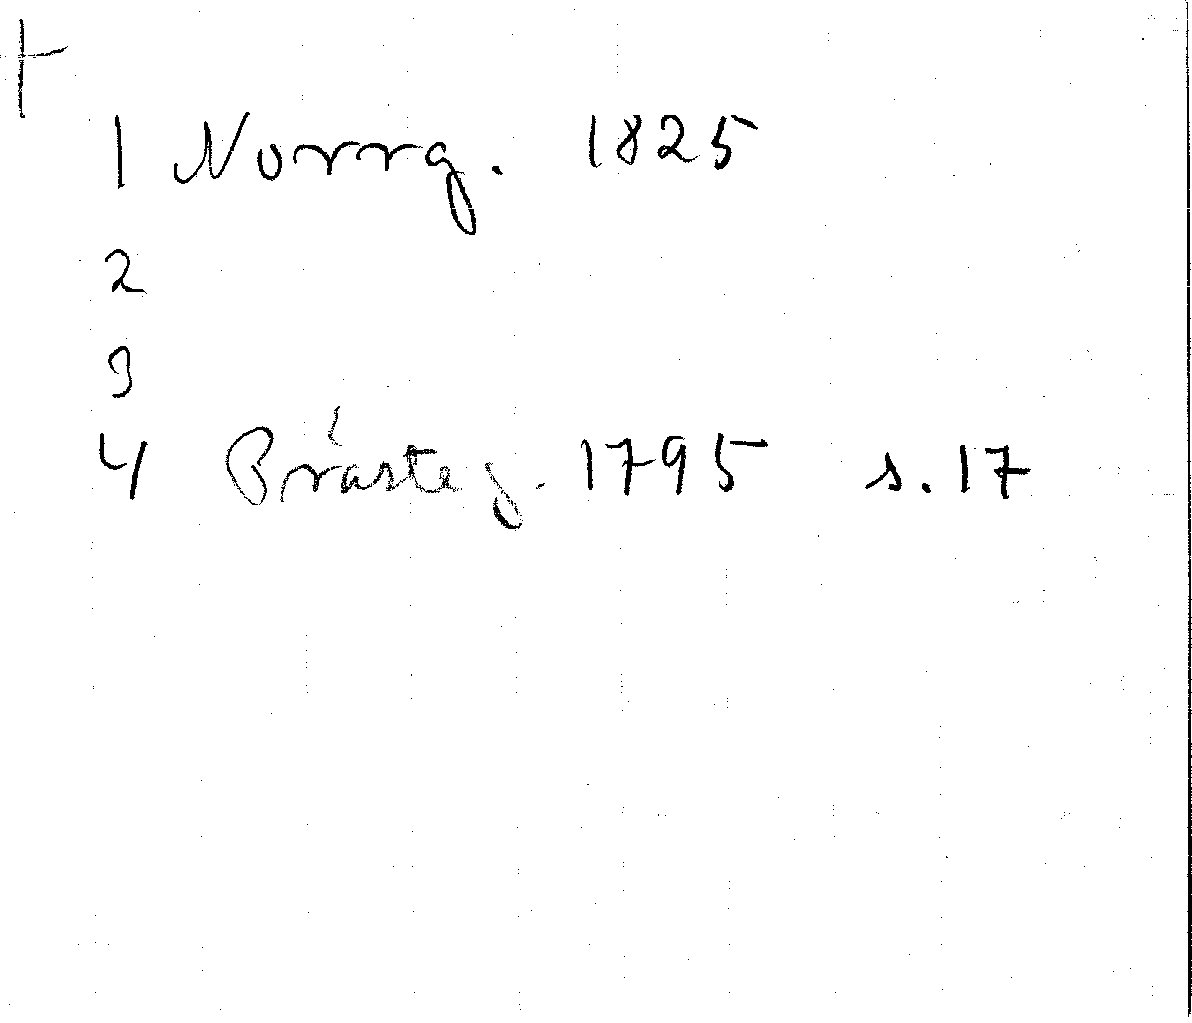 +
1 Norrg. 1825
2
3
4 Prästeg. 1795 s. 17